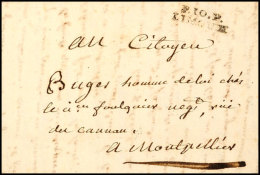 P.10.P.
LIMOUX
Au Citoyen
Buges homme de loi chés
le cen foulquier négt, rue
du cannau.
a Montpellier